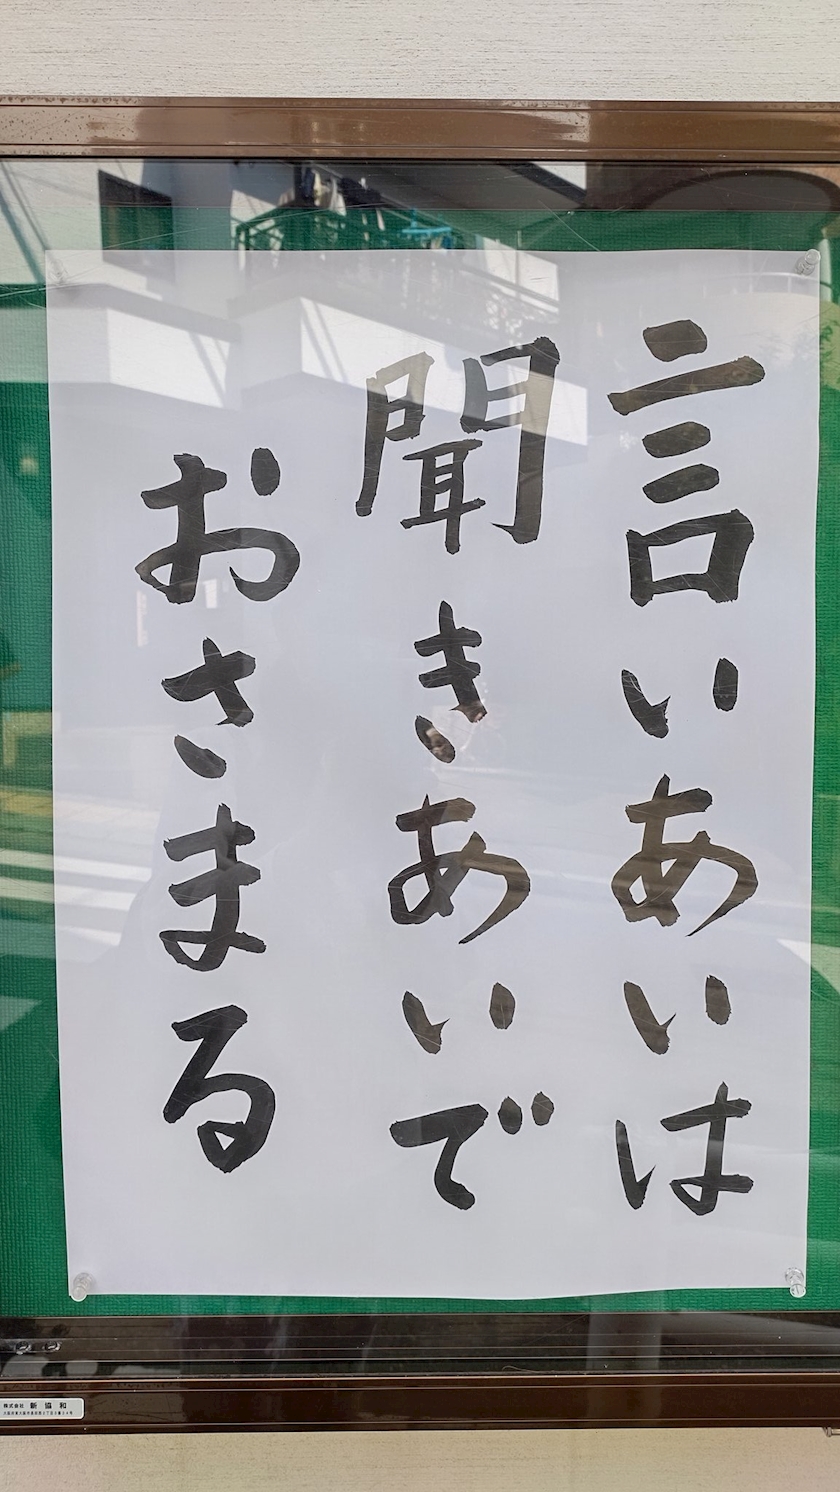 言いあいは
聞きあいで
おさまる
株式会社 新協和